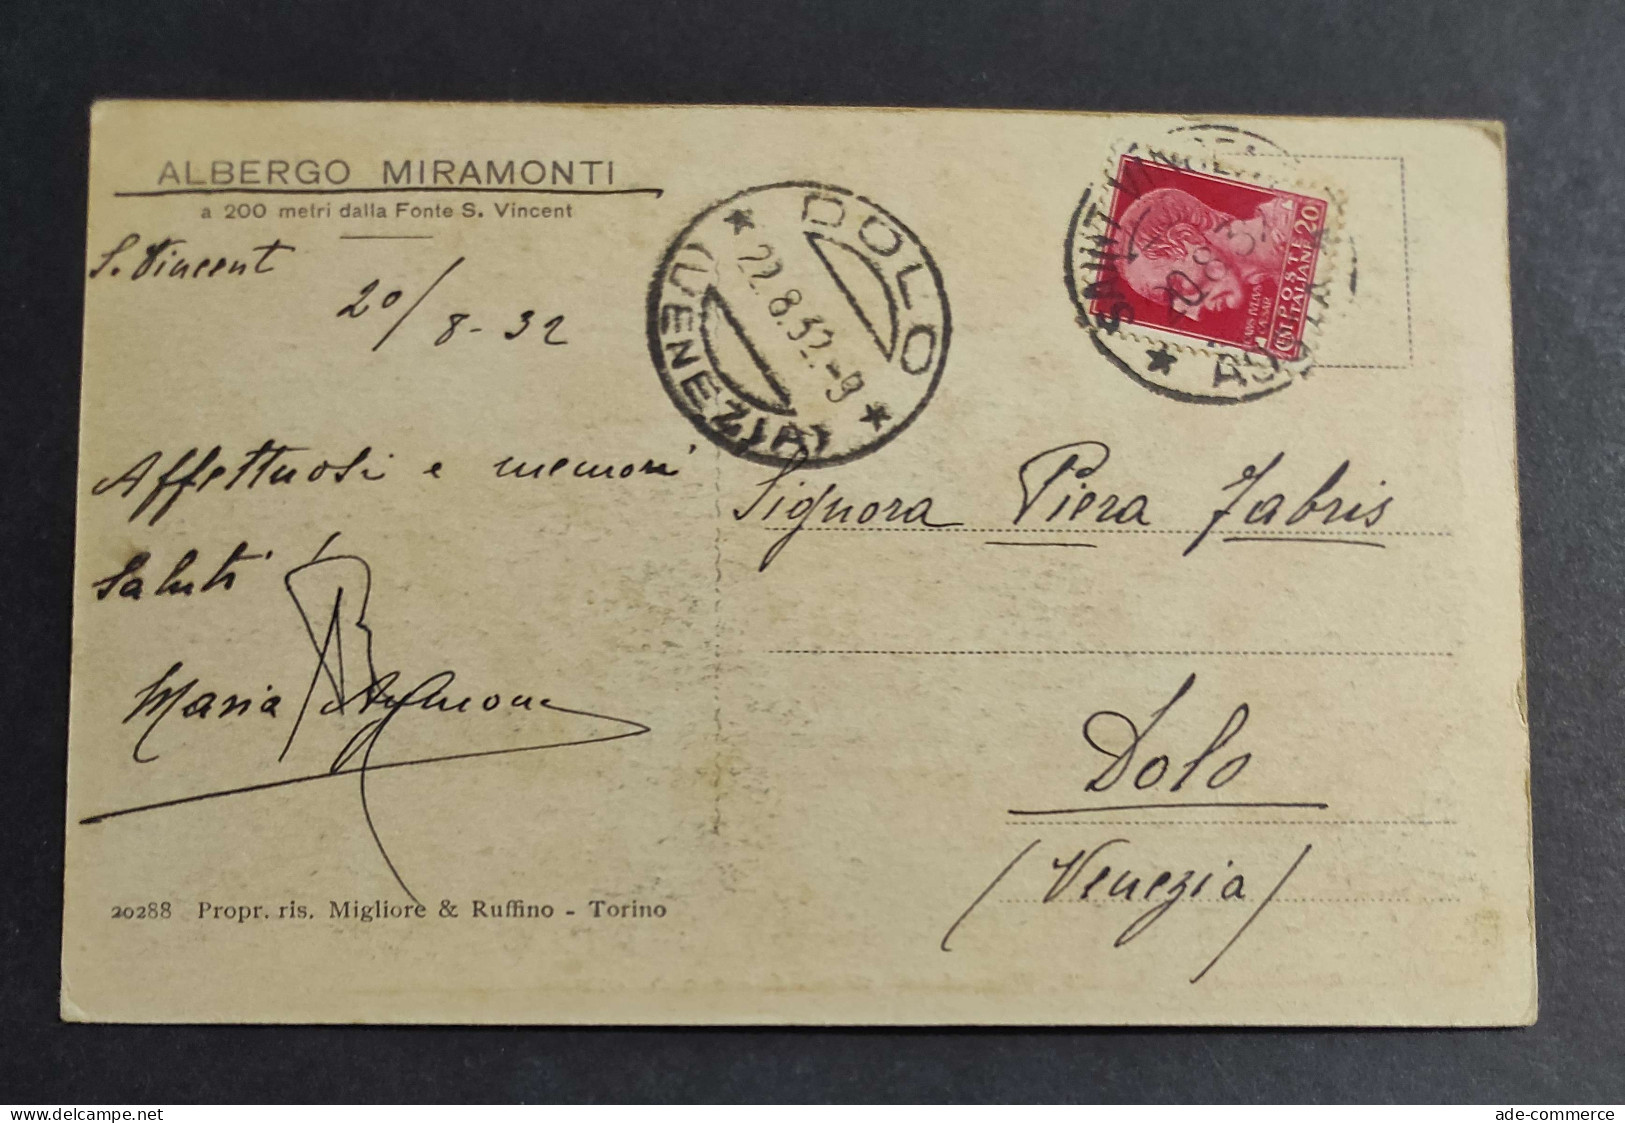 ALBERGO MIRAMONTI
a 200 metri dalla Fonte S. Vincent
S. Vincent
20/8-32
DOLO
(VENEZIA)
22.8.32.-9
SAINT VINCENT
20.8.32
AOSTA
POSTE ITALIANE
CENT 20
Affettuosi e memori
saluti
Maria
Signora Piera Fabris
Dolo
(Venezia)
20288 Propr. ris. Migliore & Ruffino - Torino
delcampe.net
ade-commerce